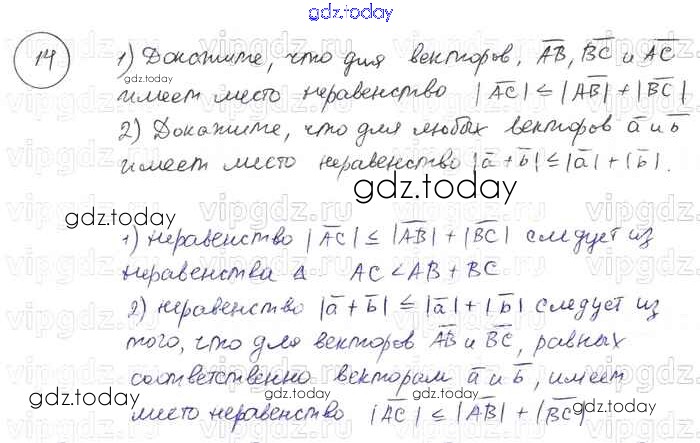 gdz.today
14
1) Докажите, что для векторов, A̅B̅, B̅C̅ и A̅C̅
gdz.today
имеет место неравенство |A̅C̅| ≤ |A̅B̅| + |B̅C̅|
2) Докажите, что для любых векторов a̅ и b̅
имеет место неравенство |a̅ + b̅| ≤ |a̅| + |b̅|.
gdz.today
gdz.today
1) неравенство |A̅C̅| ≤ |A̅B̅| + |B̅C̅| следует из
неравенства Δ. AC < AB + BC
2) неравенство |a̅ + b̅| ≤ |a̅| + |b̅| следует из
gdz.today
того, что для векторов A̅B̅ и B̅C̅, равных
соответственно векторам a̅ и b̅, имеет
gdz.today
gdz.today
место неравенство |A̅C̅| ≤ |A̅B̅| + |B̅C̅|